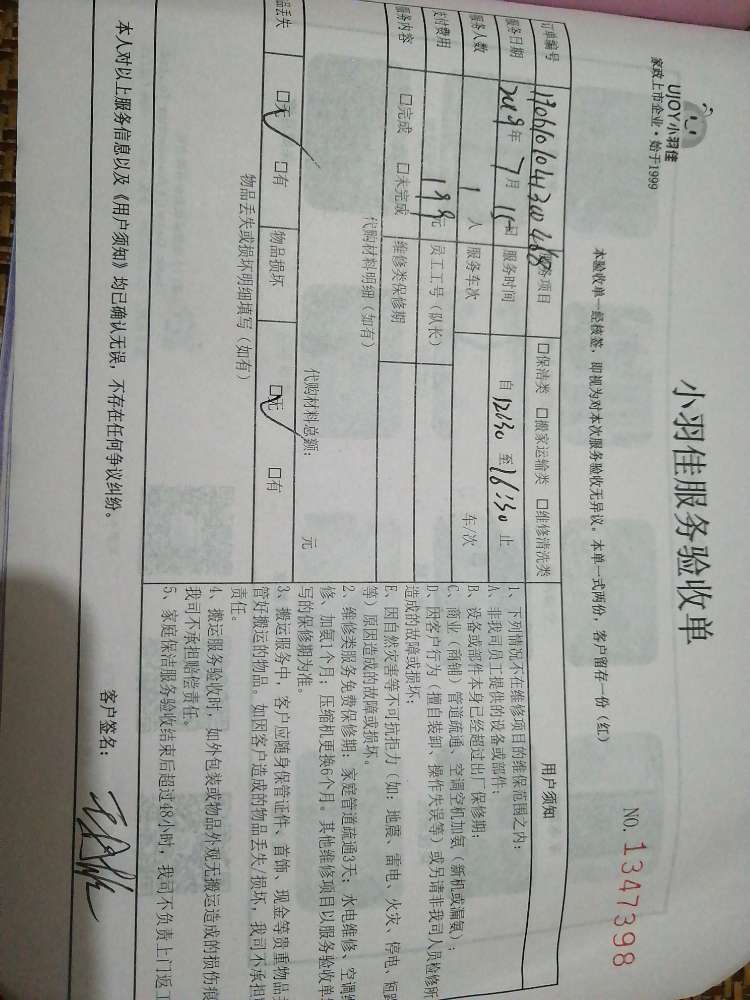 UJOY小羽佳
家政上市企业·始于1999
小羽佳服务验收单
NO. 1347398
本验收单一经核签，即视为对本次服务验收无异议。本单一式两份，客户留存一份（红）
订单编号 服务项目 □保洁类 □搬家运输类 □维修清洗类
服务日期 2019年7月15日 服务时间 自12:30至16:30止
服务人数 1人 服务车次 车/次
支付费用 199元 员工工号（队长）
服务内容 □完成 □未完成 维修类保修期
代购材料明细（如有）
代购材料总额： 元
物品丢失 ☑无 □有 物品损坏 ☑无 □有
物品丢失或损坏明细填写（如有）
用户须知
1、下列情况不在维修项目的维保范围之内：
A、非我司员工提供的设备或部件；
B、设备或部件本身已经超过出厂保修期；
C、商业（商铺）管道疏通、空调空机加氨（新机或漏氨）；
D、因客户行为（擅自装卸、操作失误等）或另请非我司人员检修所
造成的故障或损坏；
E、因自然灾害等不可抗拒力（如：地震、雷电、火灾、停电、短路
等）原因造成的故障或损坏。
2、维修类服务免费保修期：家庭管道疏通3天；水电维修、空调维
修、加氨1个月；压缩机更换6个月。其他维修项目以服务验收单填
写的保修期为准。
3、搬运服务中，客户应随身保管证件、首饰、现金等贵重物品并
管好搬运的物品。如因客户造成的物品丢失/损坏，我司不承担
责任。
4、搬运服务验收时，如外包装或物品外观无搬运造成的损伤痕
我司不承担赔偿责任。
5、家庭保洁服务验收结束后超过48小时，我司不负责上门返工
本人对以上服务信息以及《用户须知》均已确认无误，不存在任何争议纠纷。
客户签名：